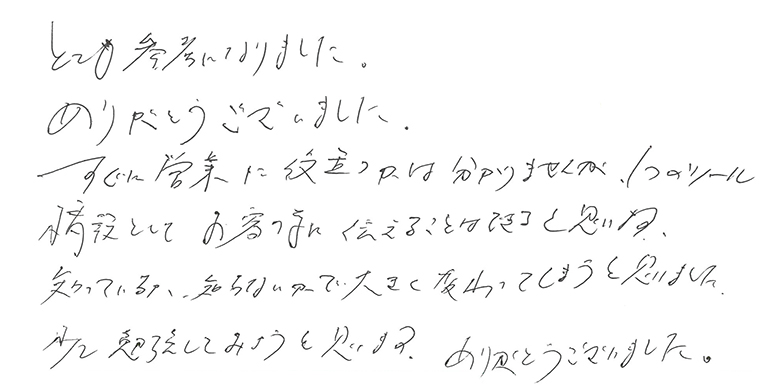 とても参考になりました。
ありがとうございました。
すぐに営業に役立つかは分かりませんが、1つのツール
としてお客様に伝えることはできると思います。
知っているか、知らないかで大きく変わってしまうと思いました。
勉強してみようと思います。ありがとうございました。